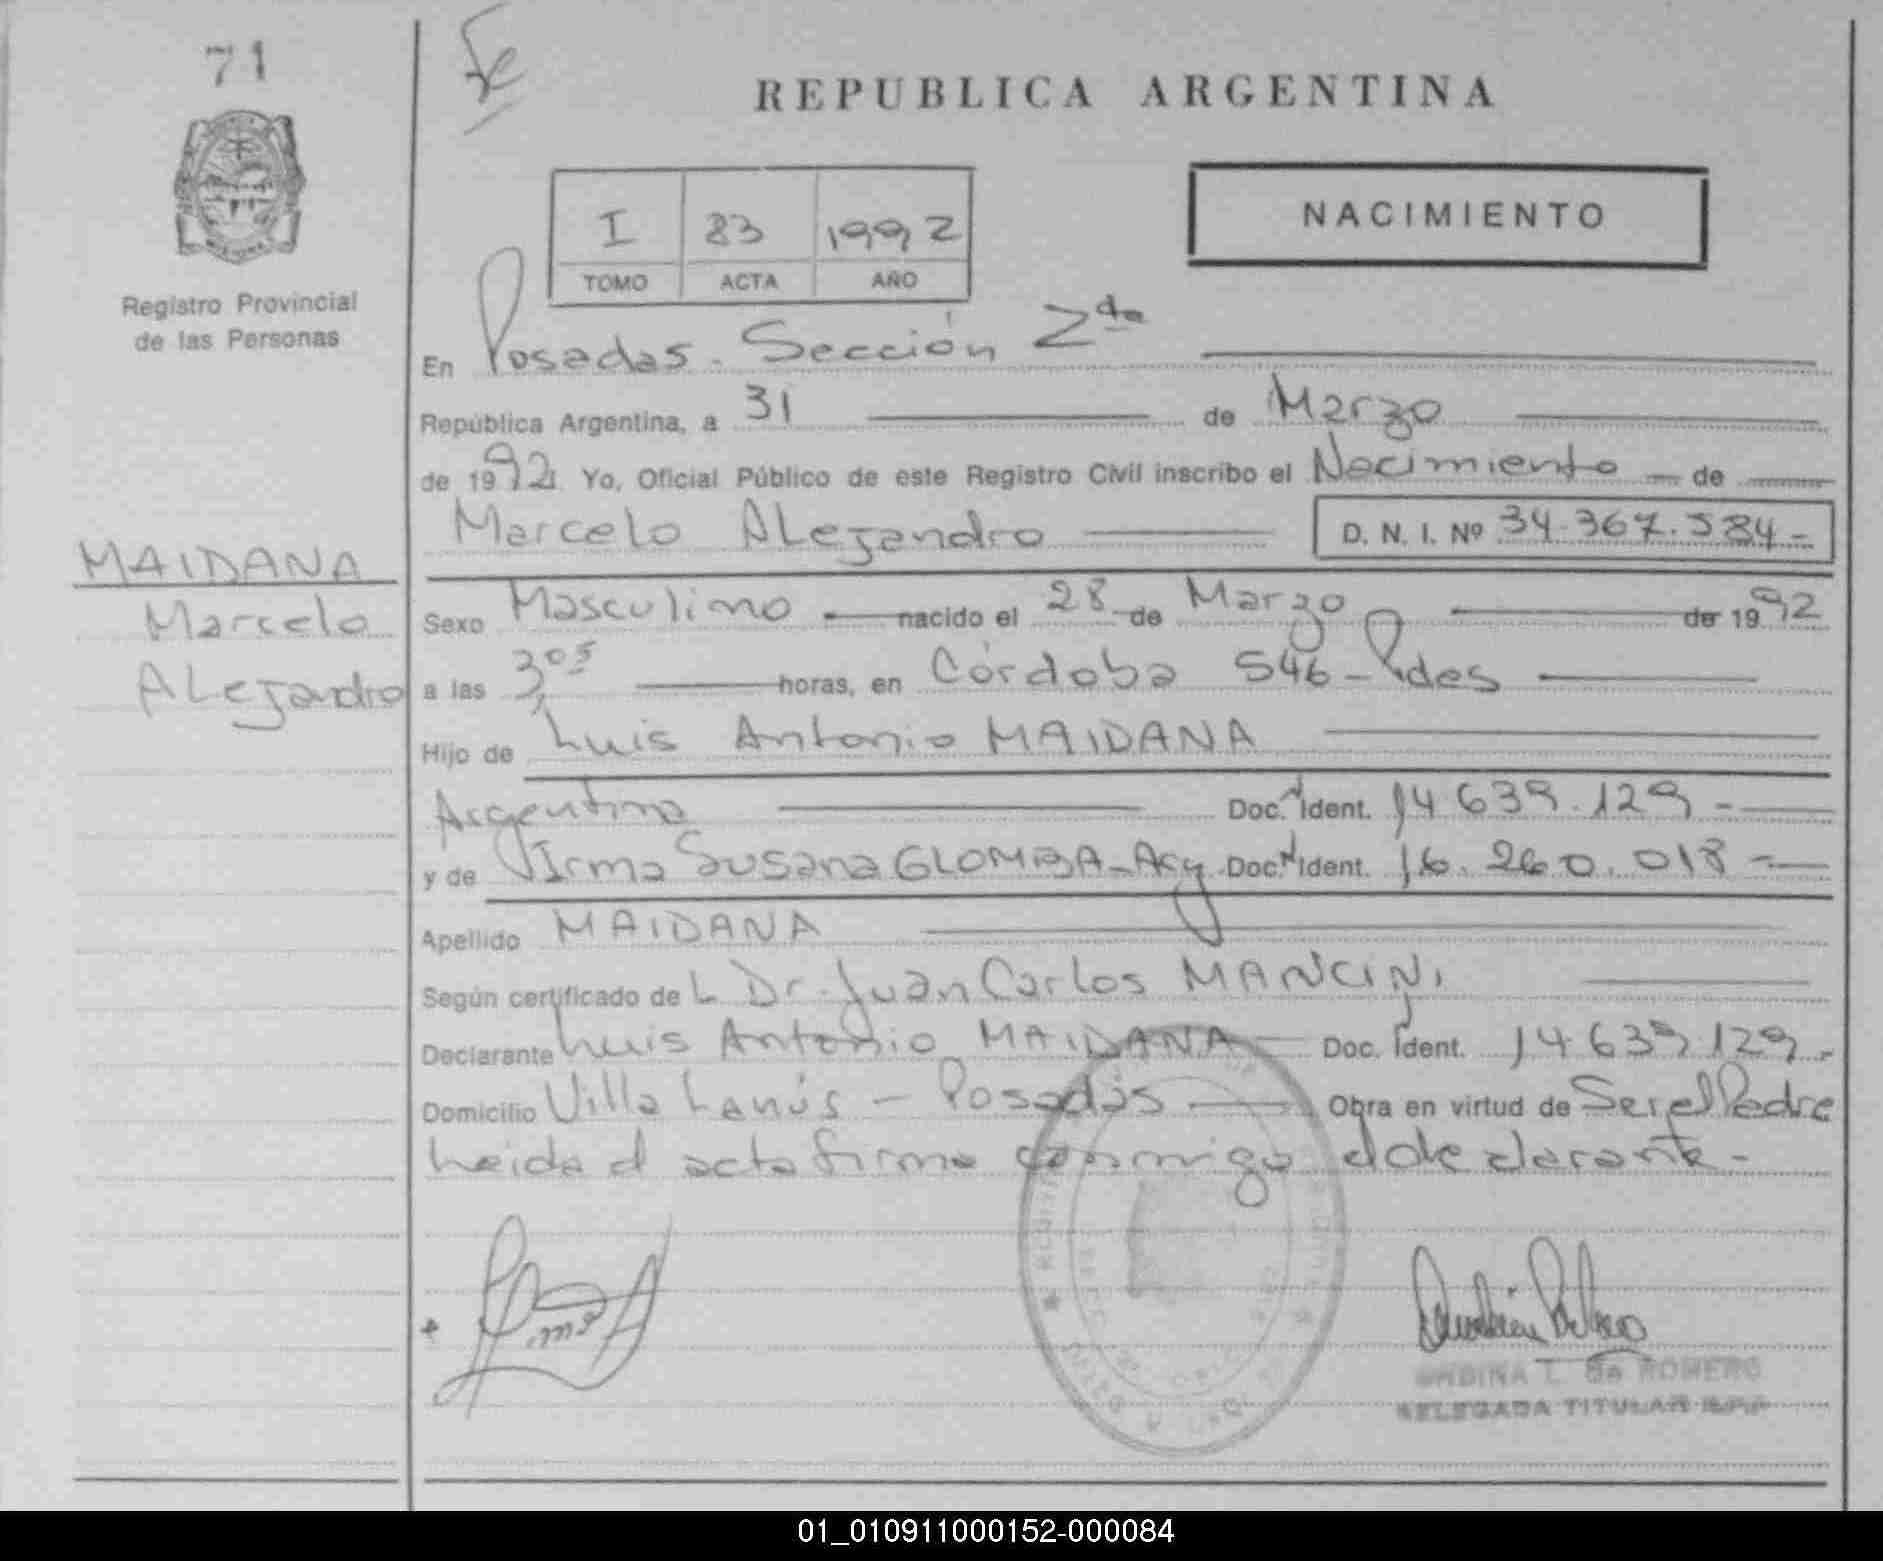 71
REPUBLICA ARGENTINA
NACIMIENTO
I 83 1992
TOMO ACTA AÑO
Registro Provincial
de las Personas
En Posadas. Sección 2da
República Argentina, a 31 de Marzo
de 1992 Yo, Oficial Público de este Registro Civil inscribo el Nacimiento de
Marcelo Alejandro D. N. I. Nº 34.367.584-
MAIDANA
Marcelo
Alejandro
Sexo Masculino nacido el 28 de Marzo de 1992
a las 3,05 horas, en Córdoba 546 - Pdas
Hijo de Luis Antonio MAIDANA
Argentino Doc. Ident. 14.639.129-
y de Irma Susana GLOMBA - Arg Doc. Ident. 16.260.018-
Apellido MAIDANA
Según certificado de L Dr. Juan Carlos MANCINI
Declarante Luis Antonio MAIDANA Doc. Ident. 14.639.129.-
Domicilio Villa Lanús - Posadas Obra en virtud de Ser el Padre
Leida el acta firma conmigo el declarante-
L. de ROMERO
DELEGADA TITULAR
01_010911000152-000084